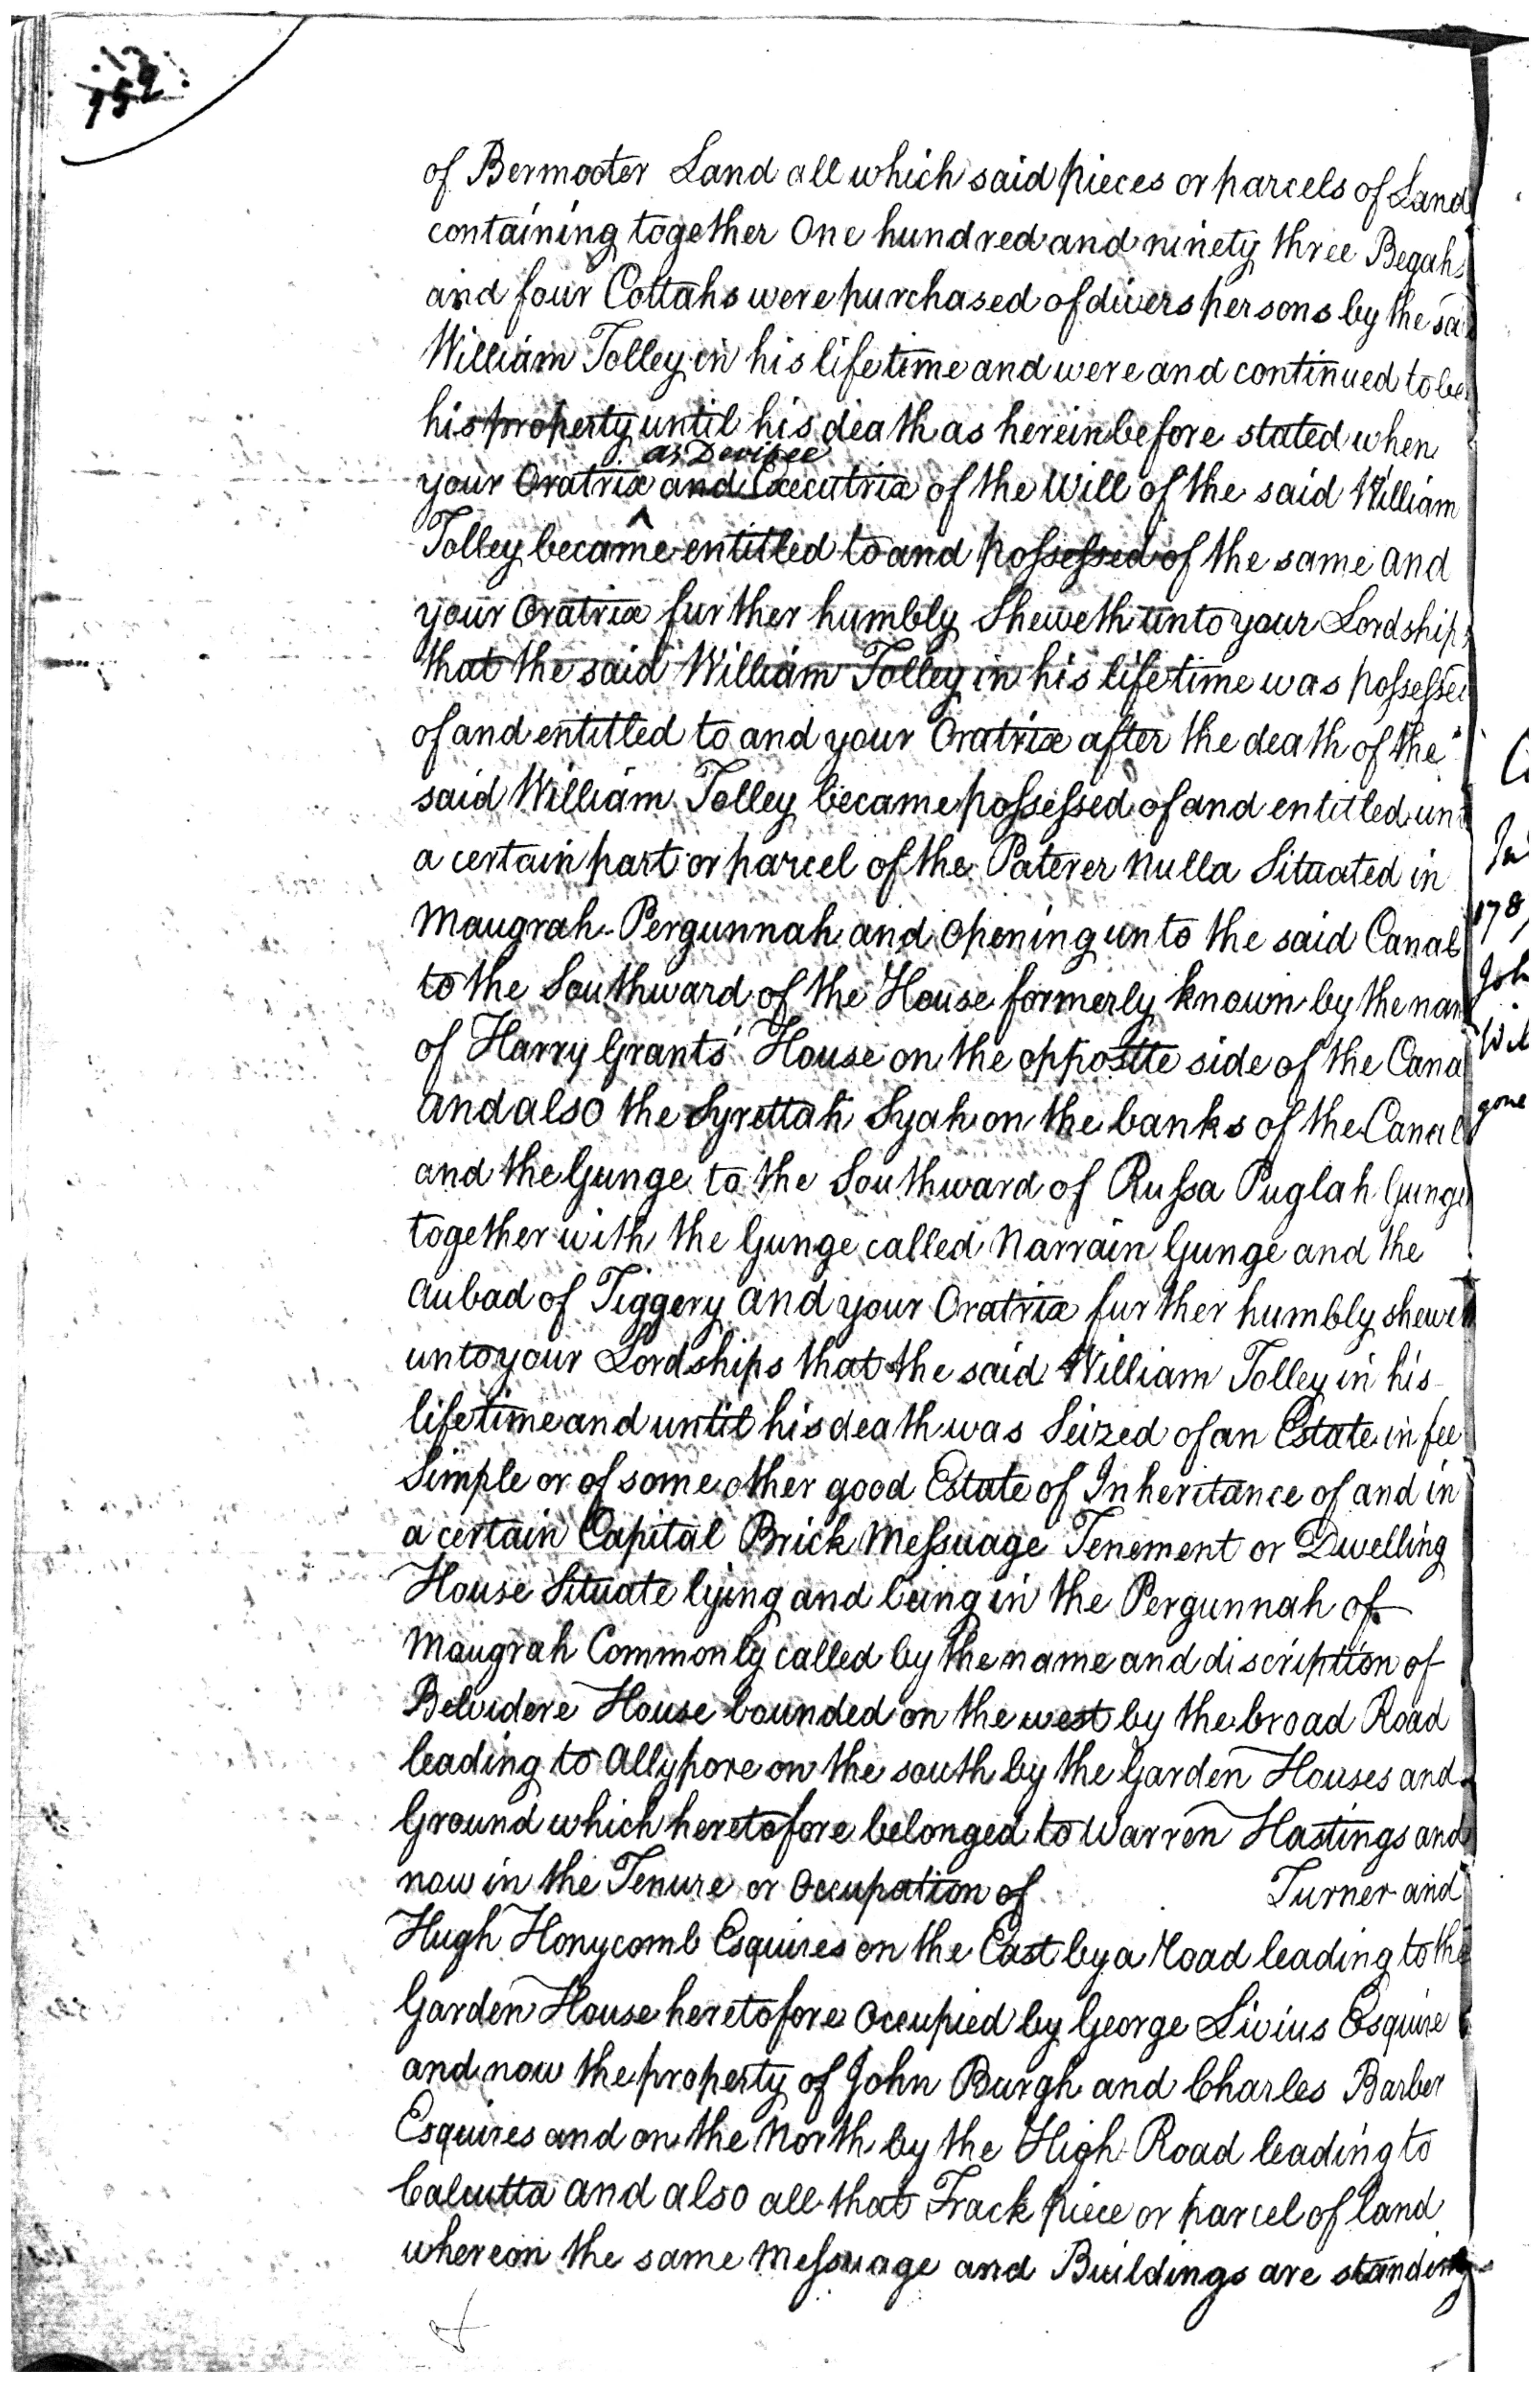 152
of Bermooter Land all which said pieces or parcels of Land
containing together One hundred and ninety three Begahs
and four Cottahs were purchased of divers persons by the sa
William Tolley in his life time and were and continued to be
his property until his death as hereinbefore stated when
as Devisee
your Oratrix and Executrix of the Will of the said William
Tolley became entitled to and possessed of the same and
your Oratrix further humbly Sheweth unto your Lordships
that the said William Tolley in his life time was possessed
of and entitled to and your Oratrix after the death of the
said William Tolley became possessed of and entitled un
a certain part or parcel of the Paterer Nulla Situated in
Maugrah Pergunnah and opening unto the said Canal
to the Southward of the House formerly known by the nam
of Harry Grants' House on the opposite side of the Cana
and also the Syrettah Syah on the banks of the Canal
and the Gunge to the Southward of Russa Puglah Gunge
together with the Gunge called Narrain Gunge and the
Aubad of Tiggery and your Oratrix further humbly shewet
unto your Lordships that the said William Tolley in his
life time and until his death was Seized of an Estate in fee
Simple or of some other good Estate of Inheritance of and in
a certain Capital Brick Messuage Tenement or Dwelling
House Situate lying and being in the Pergunnah of
Maugrah Commonly called by the name and discription of
Belvidere House bounded on the west by the broad Road
leading to Allypore on the south by the Garden Houses and
Ground which heretofore belonged to Warren Hastings and
now in the Tenure or Occupation of Turner and
Hugh Honycomb Esquires on the East by a road leading to the
Garden House heretofore Occupied by George Livius Esquire
and now the property of John Burgh and Charles Barber
Esquires and on the North by the High Road leading to
Calcutta and also all that Track piece or parcel of land
whereon the same Messuage and Buildings are standing
178
Joh
Wil
gone